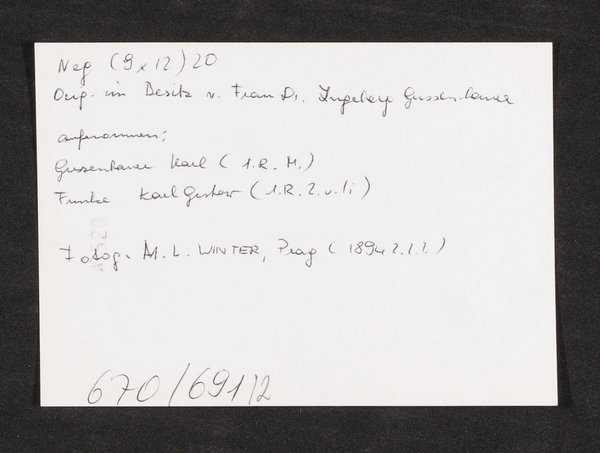 Neg (9x12) 20
Orig. im Besitz v. Frau Dr. Ingeborg Gussenbauer
aufnommen:
Gussenbauer Karl (1.R. M.)
Funke Karl Gustav (1.R. 2.v.li)
Fotog. M. L. WINTER, Prag (1894 ?.?.?.)
670/691/2